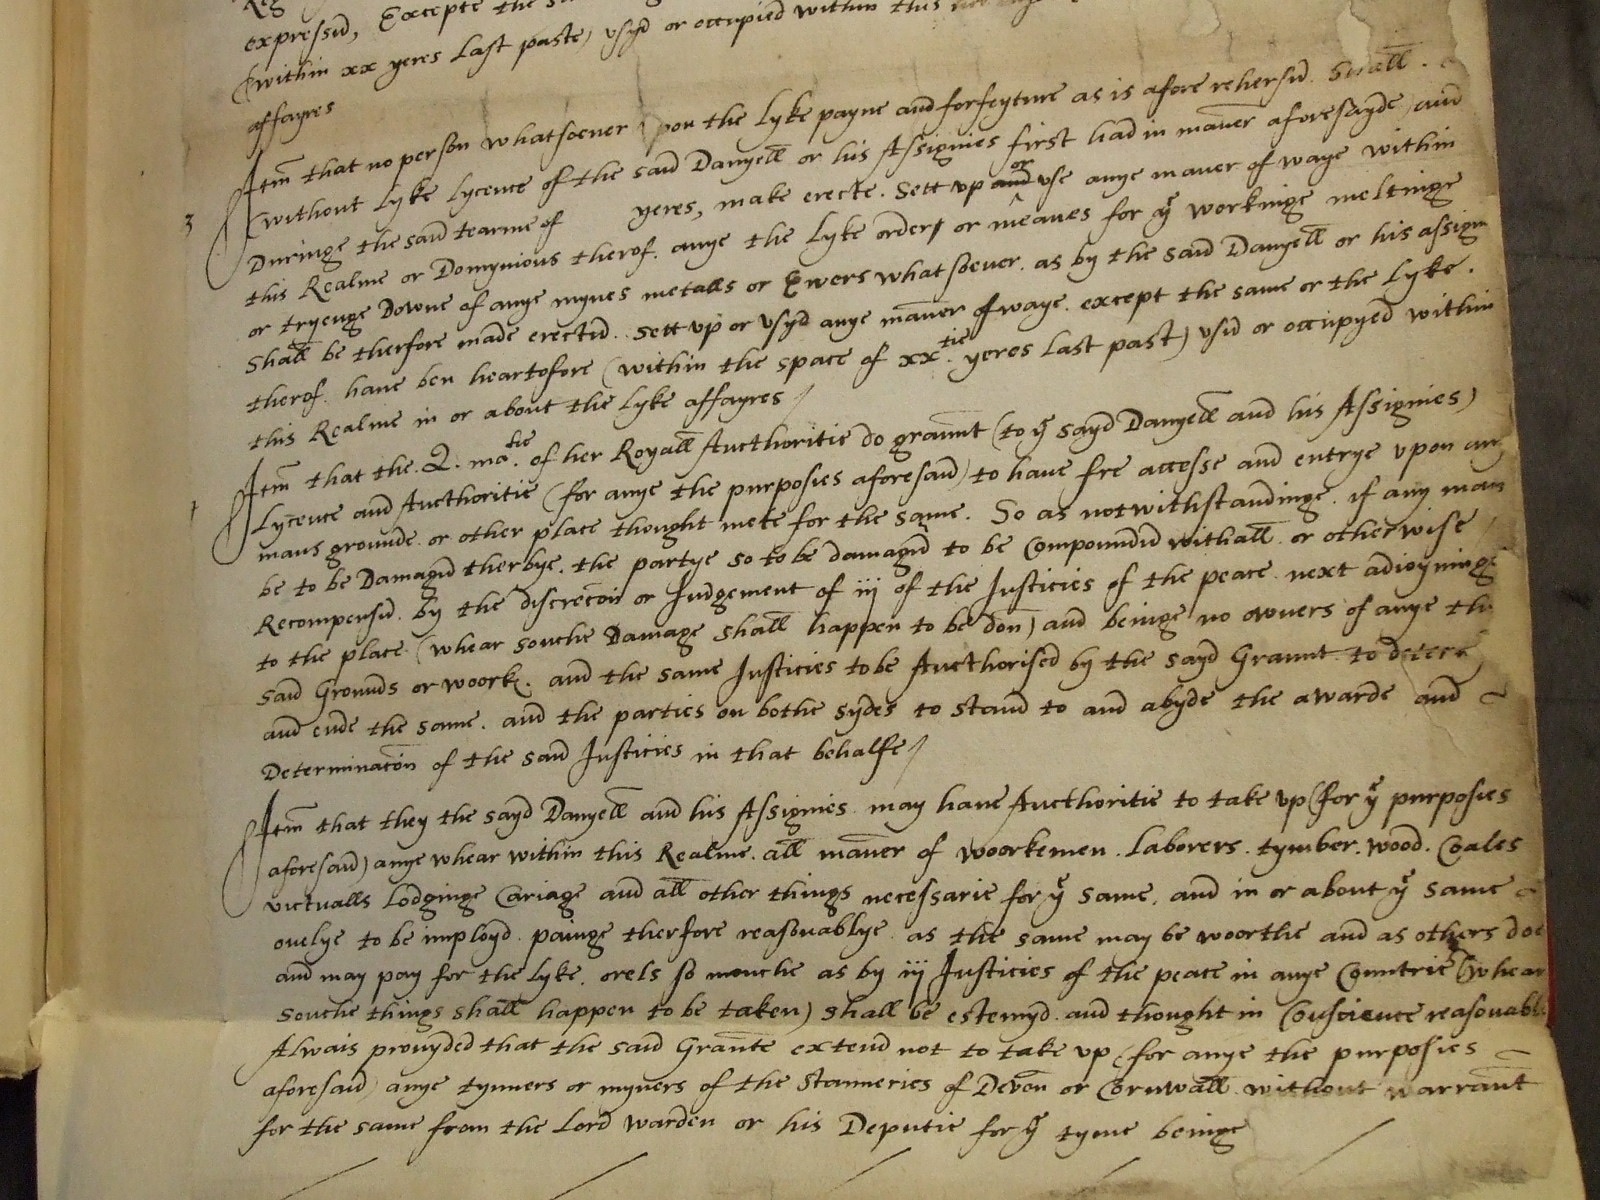 expressid, Excepte the
(within xx yeres Last paste) vsyd or occupied within this
affayres
Itm that no person whatsoeuer vpon the Lyke payne and forfeyture as is afore rehersid. Shall.
3 (without Lyke Lycence of the said Danyell or his Assignies first had in maner aforesayde, and
Duringe the said tearme of yeres, make erecte. Sett vp and or vse anye maner of waye within
this Realme or Domynions therof. anye the Lyke orders or meanes for ye workinge meltinge
or tryenge Downe of anye mynes metalls or Ewers whatsoeuer. as by the said Danyell or his assign
Shall be therfore made erectid. Sett vp or vsyd anye maner of waye. except the same or the Lyke.
therof. haue ben heartofore (within the space of xxtie. yeres Last past) vsid or occupyed within
this Realme in or about the Lyke affayres /
Itm that the. Q. matie. of her Royall Aucthoritie do graunt (to ye sayd Danyell and his Assignies)
Lycence and Aucthoritie (for anye the purposies aforesaid) to haue fre accesse and entrye vpon any
mans grounde. or other place thought mete for the same. So as notwithstandinge. if any man
be to be Damagid therbye. the partye so to be damagid to be Compoundid withall. or otherwise
Recompensid. by the discrecon or Judgement of iij of the Justicies of the peace. next adioyninge
to the place (whear souche Damage shall happen to be don) and beinge no owners of anye the
said Grounds or woorks. and the same Justicies to be Aucthorised by the sayd Graunt. to
and ende the same. and the parties on bothe sydes to stand to and abyde the awarde and
Determinacon of the said Justicies in that behalfe /
Itm that they the sayd Danyell and his Assignies may haue Aucthoritie to take vp (for ye purposies
aforesaid) anye whear within this Realme. all maner of woorkemen. Laborers. tymber. wood. Coales
victualls Lodginge Cariage and all other things necessarie for ye same. and in or about ye same
onelye to be imployd. painge therfore reasonablye. as the same may be woorthe and as others doe
and may pay for the Lyke. orels so mouche as by iij Justicies of the peace in anye Countrie (whear
Souche things shall happen to be taken) shall be estemyd. and thought in Conscience reasonable
Alwais prouyded that the said Graunte extend not to take vp (for anye the purposies
aforesaid) anye tynners or myners of the Stanneries of Devon or Cornwall. without warrant
for the same from the Lord Warden or his Deputie for ye tyme beinge